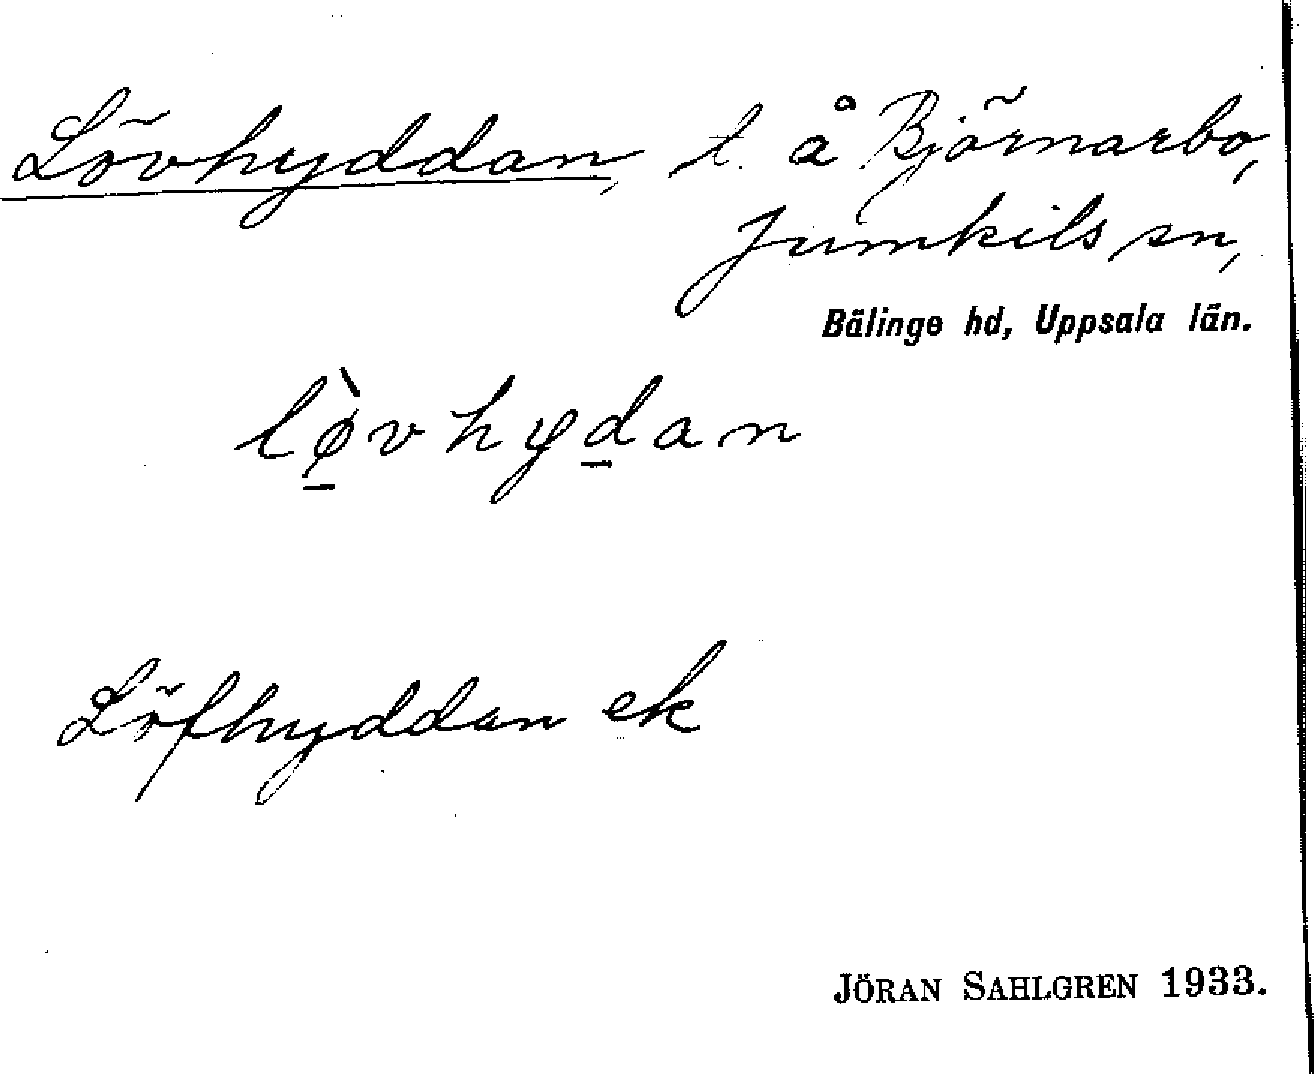 Lövhyddan, t. å Björnarbo,
Jumkils sn,
Bälinge hd, Uppsala län.
lø̀vhydan
Löfhyddan ek
JÖRAN SAHLGREN 1933.